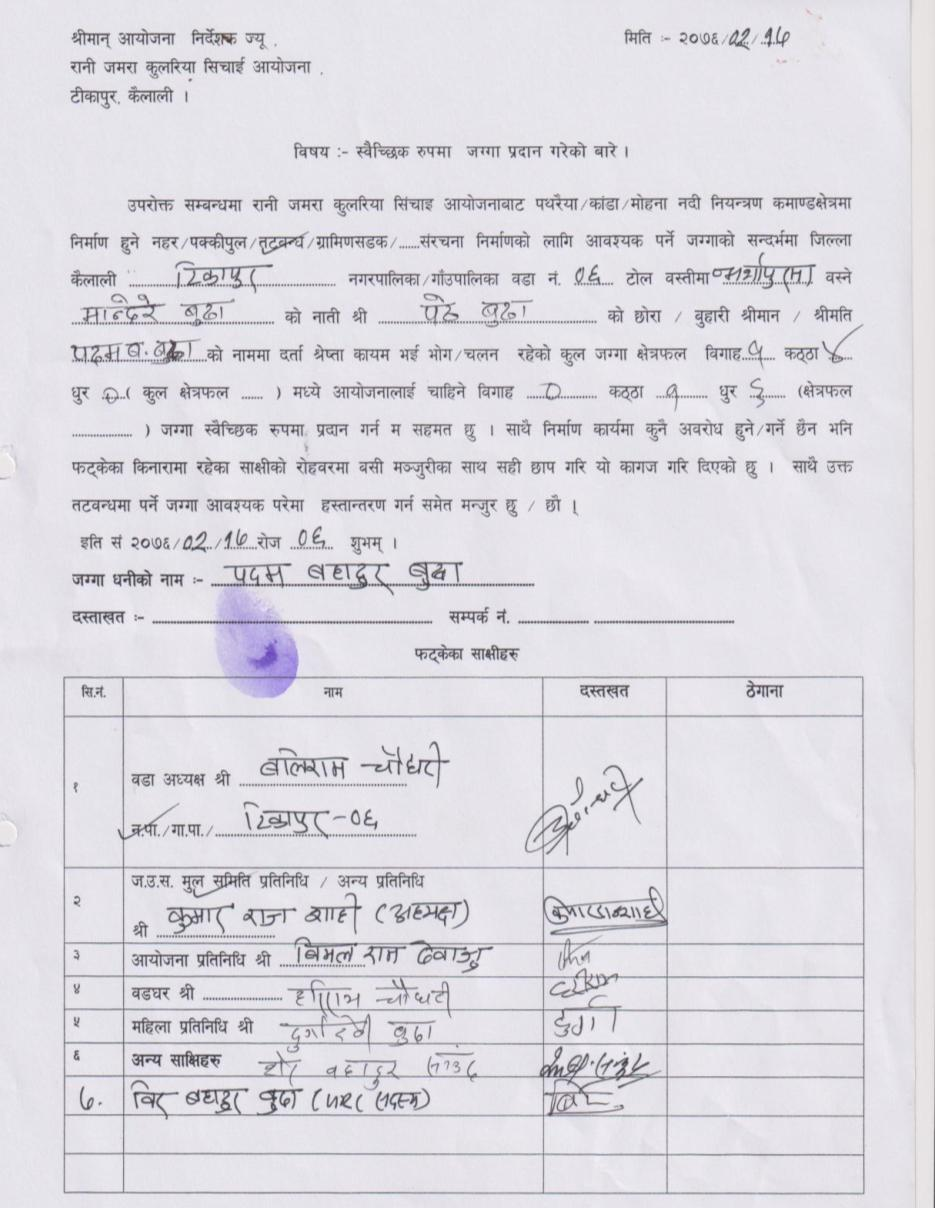 श्रीमान् आयोजना निर्देशक ज्यू ,
मिति :- २०७६/02/16
रानी जमरा कुलरिया सिचाई आयोजना ,
टीकापुर, कैलाली ।
विषय :- स्वैच्छिक रुपमा जग्गा प्रदान गरेको बारे ।
उपरोक्त सम्बन्धमा रानी जमरा कुलरिया सिंचाइ आयोजनाबाट पथरैया/कांडा/मोहना नदी नियन्त्रण कमाण्डक्षेत्रमा
निर्माण हुने नहर/पक्कीपुल/तटबन्ध/ग्रामिणसडक/......संरचना निर्माणको लागि आवश्यक पर्ने जग्गाको सन्दर्भमा जिल्ला
कैलाली टिकापुर नगरपालिका/गाँउपालिका वडा नं. ०६ टोल वस्तीमा वस्ने
बुढा को नाती श्री बुढा को छोरा / बुहारी श्रीमान / श्रीमति
पदम ब. बुढा को नाममा दर्ता श्रेष्ता कायम भई भोग/चलन रहेको कुल जग्गा क्षेत्रफल विगाह १ कठ्ठा
धुर ० ( कुल क्षेत्रफल ...... ) मध्ये आयोजनालाई चाहिने विगाह ० कठ्ठा १ धुर ६ (क्षेत्रफल
............... ) जग्गा स्वैच्छिक रुपमा प्रदान गर्न म सहमत छु । साथै निर्माण कार्यमा कुनै अवरोध हुने/गर्ने छैन भनि
फट्केका किनारामा रहेका साक्षीको रोहवरमा बसी मञ्जुरीका साथ सही छाप गरि यो कागज गरि दिएको छु । साथै उक्त
तटवन्धमा पर्ने जग्गा आवश्यक परेमा हस्तान्तरण गर्न समेत मन्जुर छु / छौ ।
इति सं २०७६/02/16 रोज ०६ शुभम् ।
जग्गा धनीको नाम :- पदम बहादुर बुढा
दस्ताखत :- ............... सम्पर्क नं. ...............
फट्केका साक्षीहरु
सि.नं. नाम दस्तखत ठेगाना
१ वडा अध्यक्ष श्री बलिराम चौधरी
न.पा./गा.पा./ टिकापुर-०६
२ ज.उ.स. मुल समिति प्रतिनिधि / अन्य प्रतिनिधि
श्री कुमार राज शाही (अध्यक्ष)
३ आयोजना प्रतिनिधि श्री बिमल राम
४ वडघर श्री हरिराम चौधरी
५ महिला प्रतिनिधि श्री दुर्गादेवी बुढा दुर्गा
६ अन्य साक्षिहरु शेर बहादुर
७. विर बहादुर बुढा